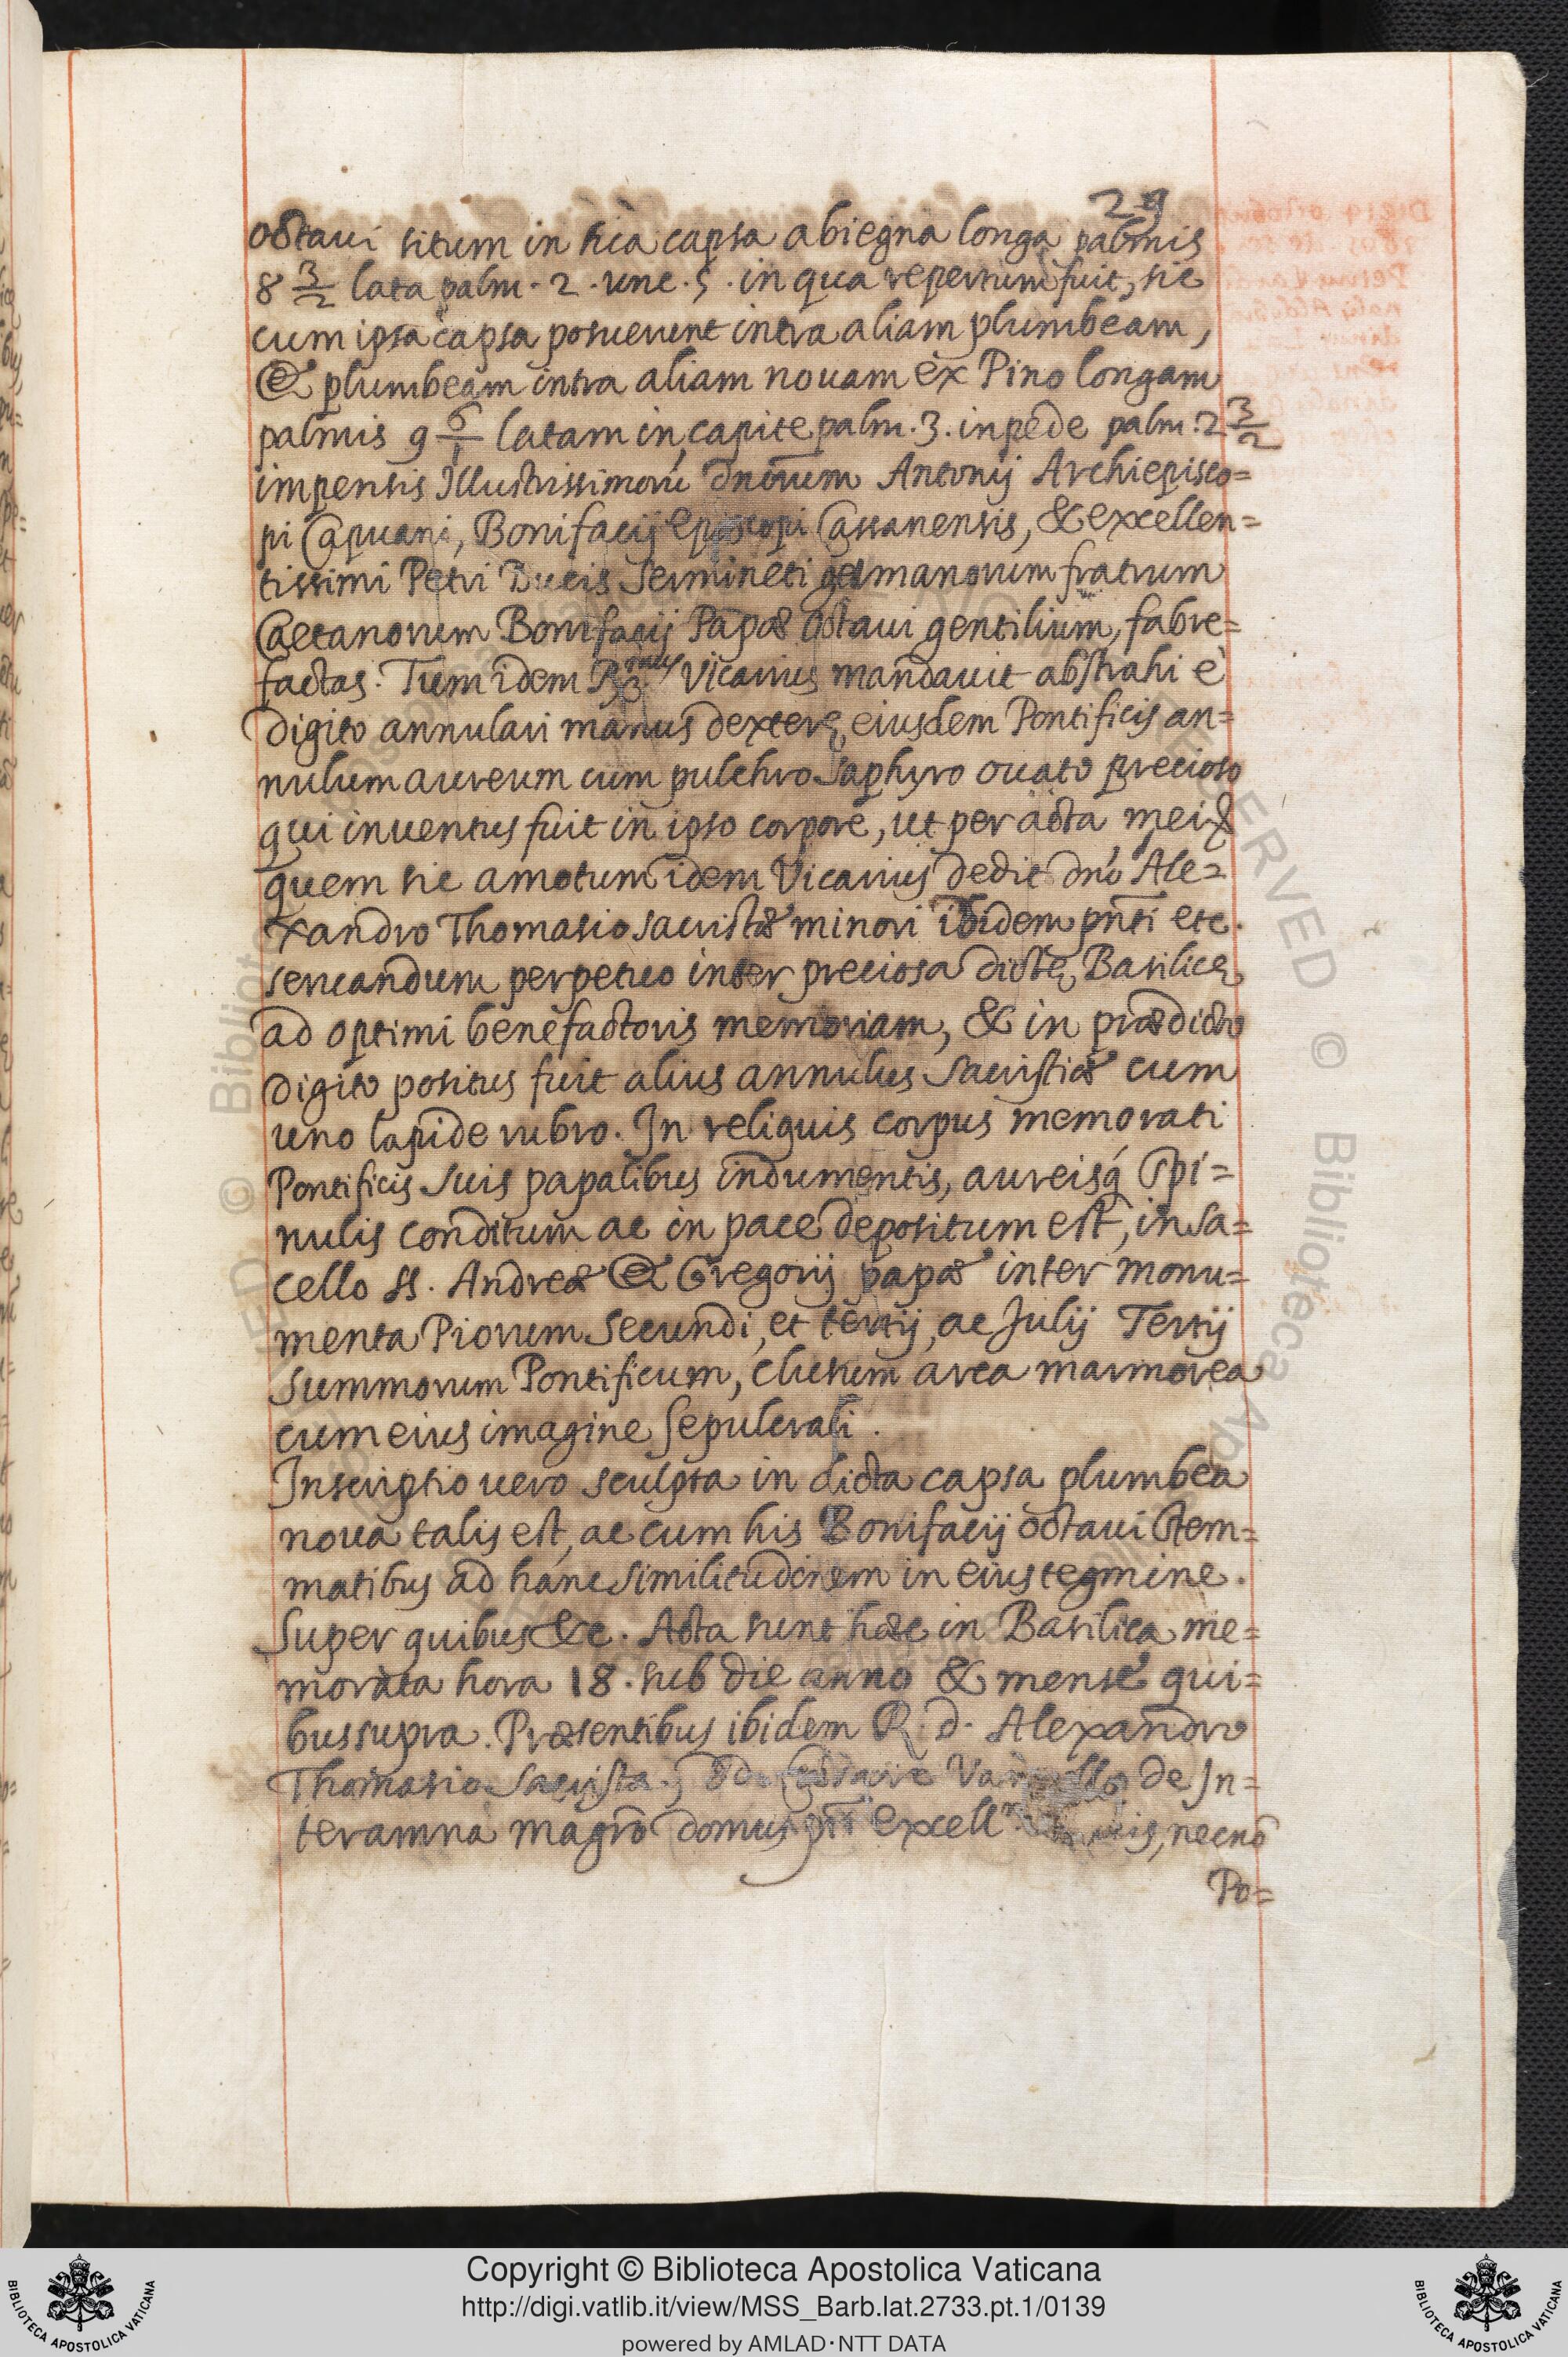 29
octaui situm in sua capsa abiegna longa palmis
8 3/2 lata palm. 2. unc. 5. in qua repertum fuit, sic
cum ipsa capsa posuerunt intra aliam plumbeam,
& plumbeam intra aliam nouam ex Pino longam
palmis 9 6/1 latam in capite palm. 3. in pede palm. 2 3/2
impensis Illustrissimorũ dnorum Antonij Archiepisco=
pi Capuani, Bonifacij Episcopi Cassanensis, & excellen=
tissimi Petri Ducis Sermineti germanorum fratrum
Caetanorum Bonifacij Papæ Octaui gentilium, fabre=
factas. Tum idem Vicarius mandauit abstrahi è
digito annulari manus dexterę eiusdem Pontificis an=
nulum aureum cum pulchro Saphyro ouato precioso
qui inuentus fuit in ipso corpore, ut per acta mei
quem sic amotum idem Vicarius dedit dño Ale=
xandro Thomasio sacristæ minori ibidem pñti etc.
seruandum perpetuo inter preciosa dictę Basilicę
ad optimi benefactoris memoriam, & in prædicto
digito positus fuit alius annulus Sacristiæ cum
uno lapide rubro. In reliquis corpus memorati
Pontificis suis papalibus indumentis, aureisq́ Spi=
nulis conditum ac in pace depositum est, in sa=
cello SS. Andreæ & Gregorij papæ inter monu=
menta Piorum Secundi, et tertij, ac Julij Tertij
Summorum Pontificum, clusum arca marmorea
cum eius imagine Sepulcrali.
Inscriptio uero sculpta in dicta capsa plumbea
noua talis est, ac cum his Bonifacij octaui Stem=
matibus ad hanc similitudinem in eius tegmine.
Super quibus &c. Acta sunt hæc in Basilica me=
morata hora 18. sub die anno & mense qui=
bus supra. Præsentibus ibidem R. d. Alexandro
Thomasio Sacrista, de In=
teramna magro domus excell necnõ
Po=
© Biblioteca Apostolica Vaticana
ALL RIGHTS RESERVED
BIBLIOTECA APOSTOLICA VATICANA
Copyright © Biblioteca Apostolica Vaticana
http://digi.vatlib.it/view/MSS_Barb.lat.2733.pt.1/0139
powered by AMLAD·NTT DATA
BIBLIOTECA APOSTOLICA VATICANA